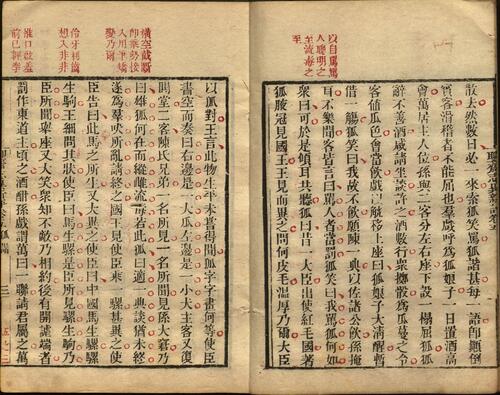 散去然數日必一來索狐笑罵狐諧甚每一語即顛倒
賓客滑稽者不能屈也羣戲呼爲狐娘子一日置酒高
會萬居主人位孫與二客分左右座下設一榻屈狐狐
辭不善酒咸請坐談許之酒數行衆擲骰爲瓜蔓之令
客値瓜色會當飲戲以觥移上座曰狐娘子大清醒暫
借一觴狐笑曰我故不飲願陳一典以佐諸公飲孫掩
耳不樂聞客皆言曰罵人者當罰狐笑曰我罵狐何如
衆曰可於是傾耳共聽狐曰昔一大臣出使紅毛國著
狐腋冠見國王王見而異之問何皮毛溫厚乃爾大臣
以自罵罵
人聰明之
至流毒之
至
以狐對王言此物生平未嘗得聞狐字字畫何等使臣
書空而奏曰右邊是一大瓜左邊是一小犬主客又復
鬨堂二客陳氏兄弟一名所見一名所聞見孫大窘乃
曰雄狐何在而縱雌流毒若此狐曰適一典談猶未終
遂爲羣吠所亂請終之國王見使臣乘一騾甚異之使
臣告曰此馬之所生又大異之使臣曰中國馬生騾騾
生駒王細問其狀使臣曰馬生騾是臣所見騾生駒乃
臣所聞舉座又大笑衆知不敵乃相約後有開謔端者
罰作東道主頃之酒酣孫戲謂萬曰一聯請君屬之萬
橫空截斷
入用筆矯
變乃爾
伶牙俐齒
想入非非
口啟羞
前已